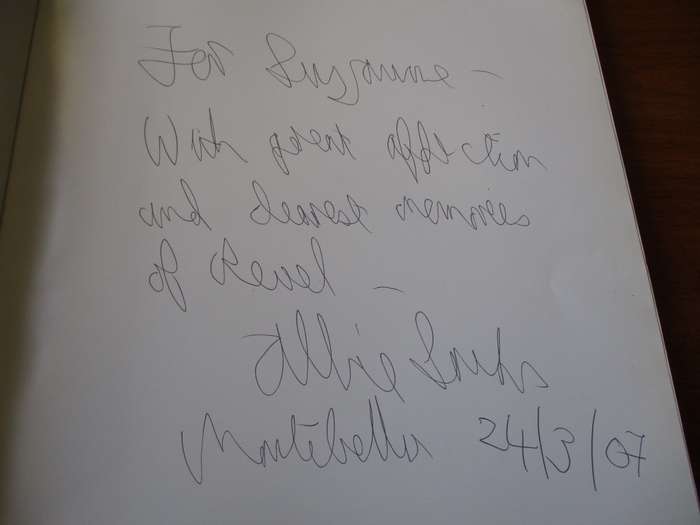 For Suzanne -
With great affection
and dearest memories
of Revel -
Albie Sachs
Montebello 24/3/07